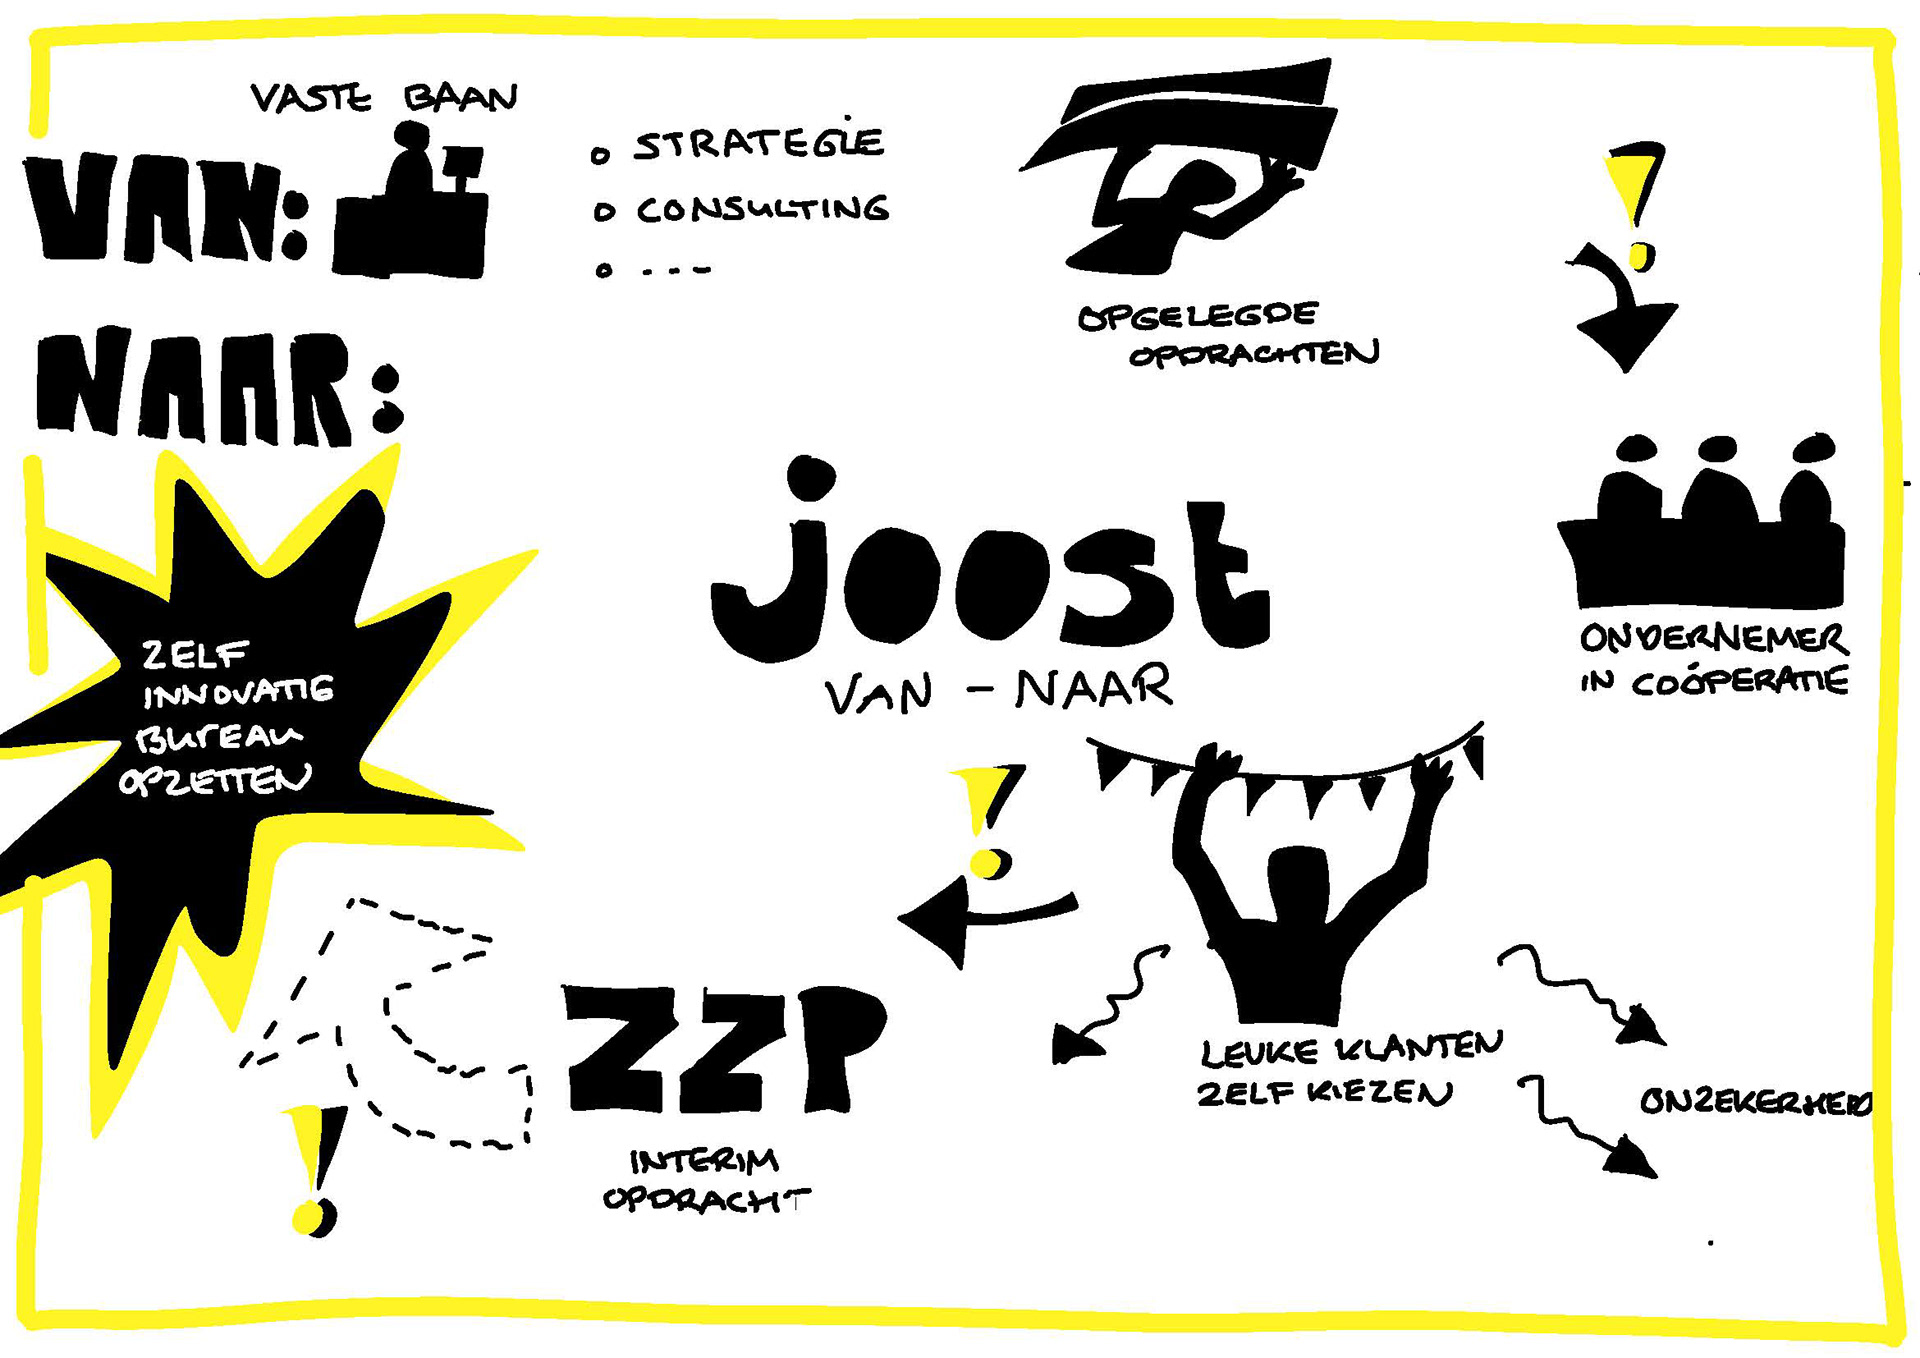 VASTE BAAN
VAN:
o STRATEGIE
o CONSULTING
o ---
OPGELEGDE
OPDRACHTEN
!
NAAR:
joost
VAN - NAAR
ONDERNEMER
IN COÓPERATIE
ZELF
INNOVATIE
BUREAU
OPZETTEN
!
LEUKE KLANTEN
ZELF KIEZEN
ONZEKERHEID
ZZP
INTERIM
OPDRACHT
!